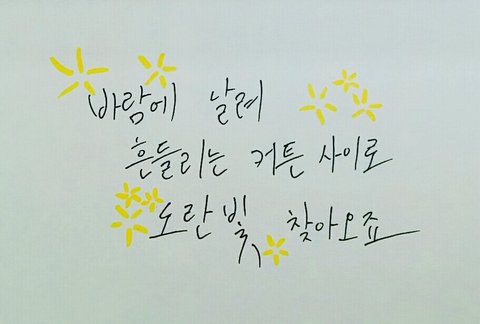 바람에 날려
흔들리는 커튼 사이로
노란빛 찾아오죠